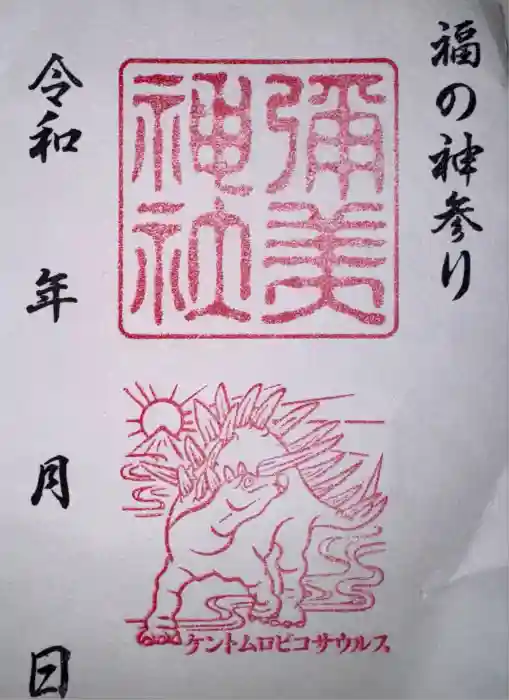 福の神参り
彌美
神社
ケントムロビコサウルス
令和 年 月 日